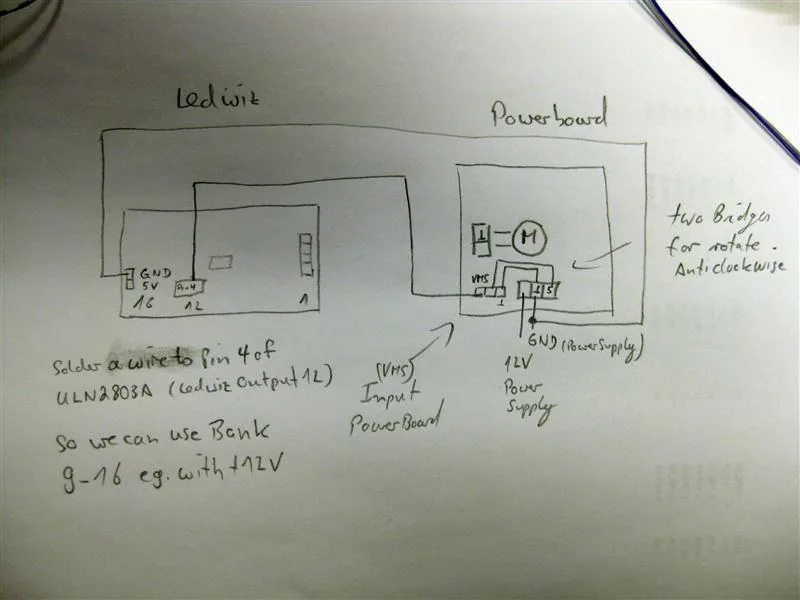 Ledwiz
Powerboard
GND
5V
16
9-4
12
1
1
M
VMS
1
1
5
two Bridges
for rotate -
Anticlockwise
GND (PowerSupply)
12V
Power
Supply
(VMS)
Input
PowerBoard
Solder a wire to Pin 4 of
ULN2803A (Ledwiz Output 12)
So we can use Bank
9-16 eg. with +12V